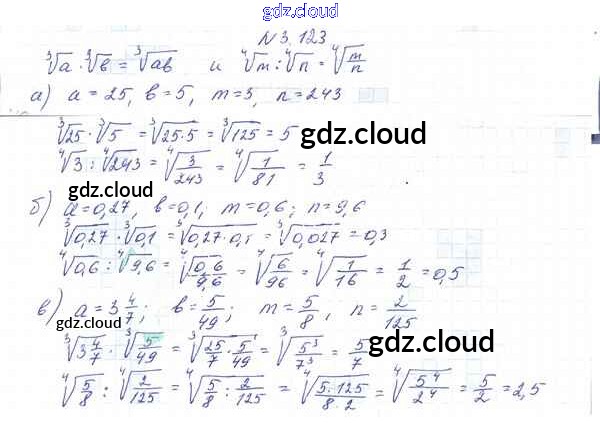 gdz.cloud
№3.123
∛a · ∛в = ∛ав и ∜m : ∜n = ∜(m/n)
а) a = 25, в = 5, m = 3, n = 243
∛25 · ∛5 = ∛(25·5) = ∛125 = 5
gdz.cloud
∜3 : ∜243 = ∜(3/243) = ∜(1/81) = 1/3
gdz.cloud
б) a = 0,27, в = 0,1, m = 0,6; n = 9,6
∛0,27 · ∛0,1 = ∛(0,27·0,1) = ∛0,027 = 0,3
∜0,6 : ∜9,6 = ∜(0,6/9,6) = ∜(6/96) = ∜(1/16) = 1/2 = 0,5
в) a = 3 4/7; в = 5/49; m = 5/8, n = 2/125
gdz.cloud
∛(3 4/7) · ∛(5/49) = ∛(25/7 · 5/49) = ∛(5³/7³) = 5/7
gdz.cloud
∜(5/8) : ∜(2/125) = ∜(5/8 : 2/125) = ∜(5·125/8·2) = ∜(5⁴/2⁴) = 5/2 = 2,5